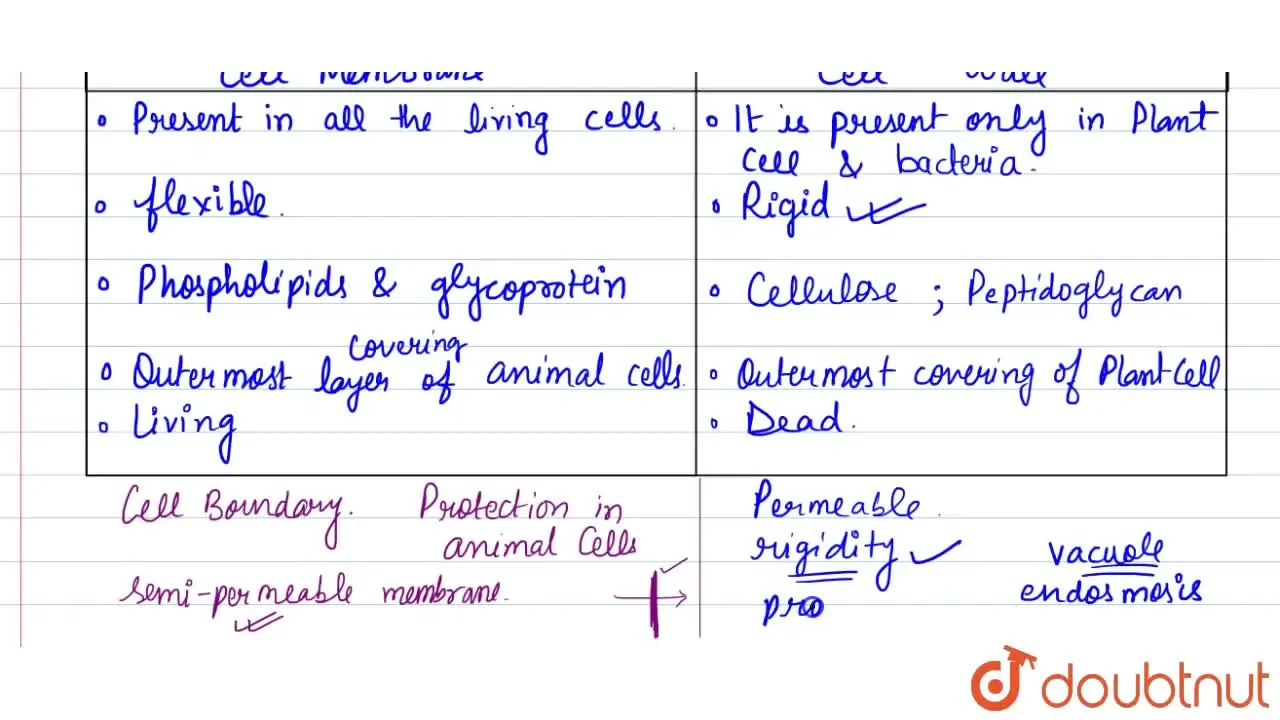 Cell Membrane Cell Wall
• Present in all the living cells. • It is present only in Plant
cell & bacteria.
• flexible. • Rigid
• Phospholipids & glycoprotein • Cellulose ; Peptidoglycan
covering
• Outermost layer of animal cells. • Outermost covering of Plant Cell
• Living • Dead.
Cell Boundary. Protection in Permeable.
animal Cells rigidity vacuole
semi-permeable membrane. endosmosis
pro
doubtnut